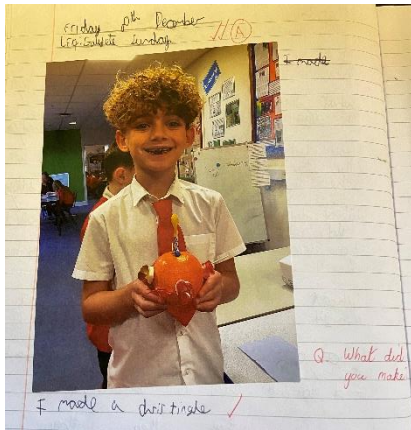 Friday December
LEQ: Gaudete Sunday
I made
Q. What did
you make
I made a christingle